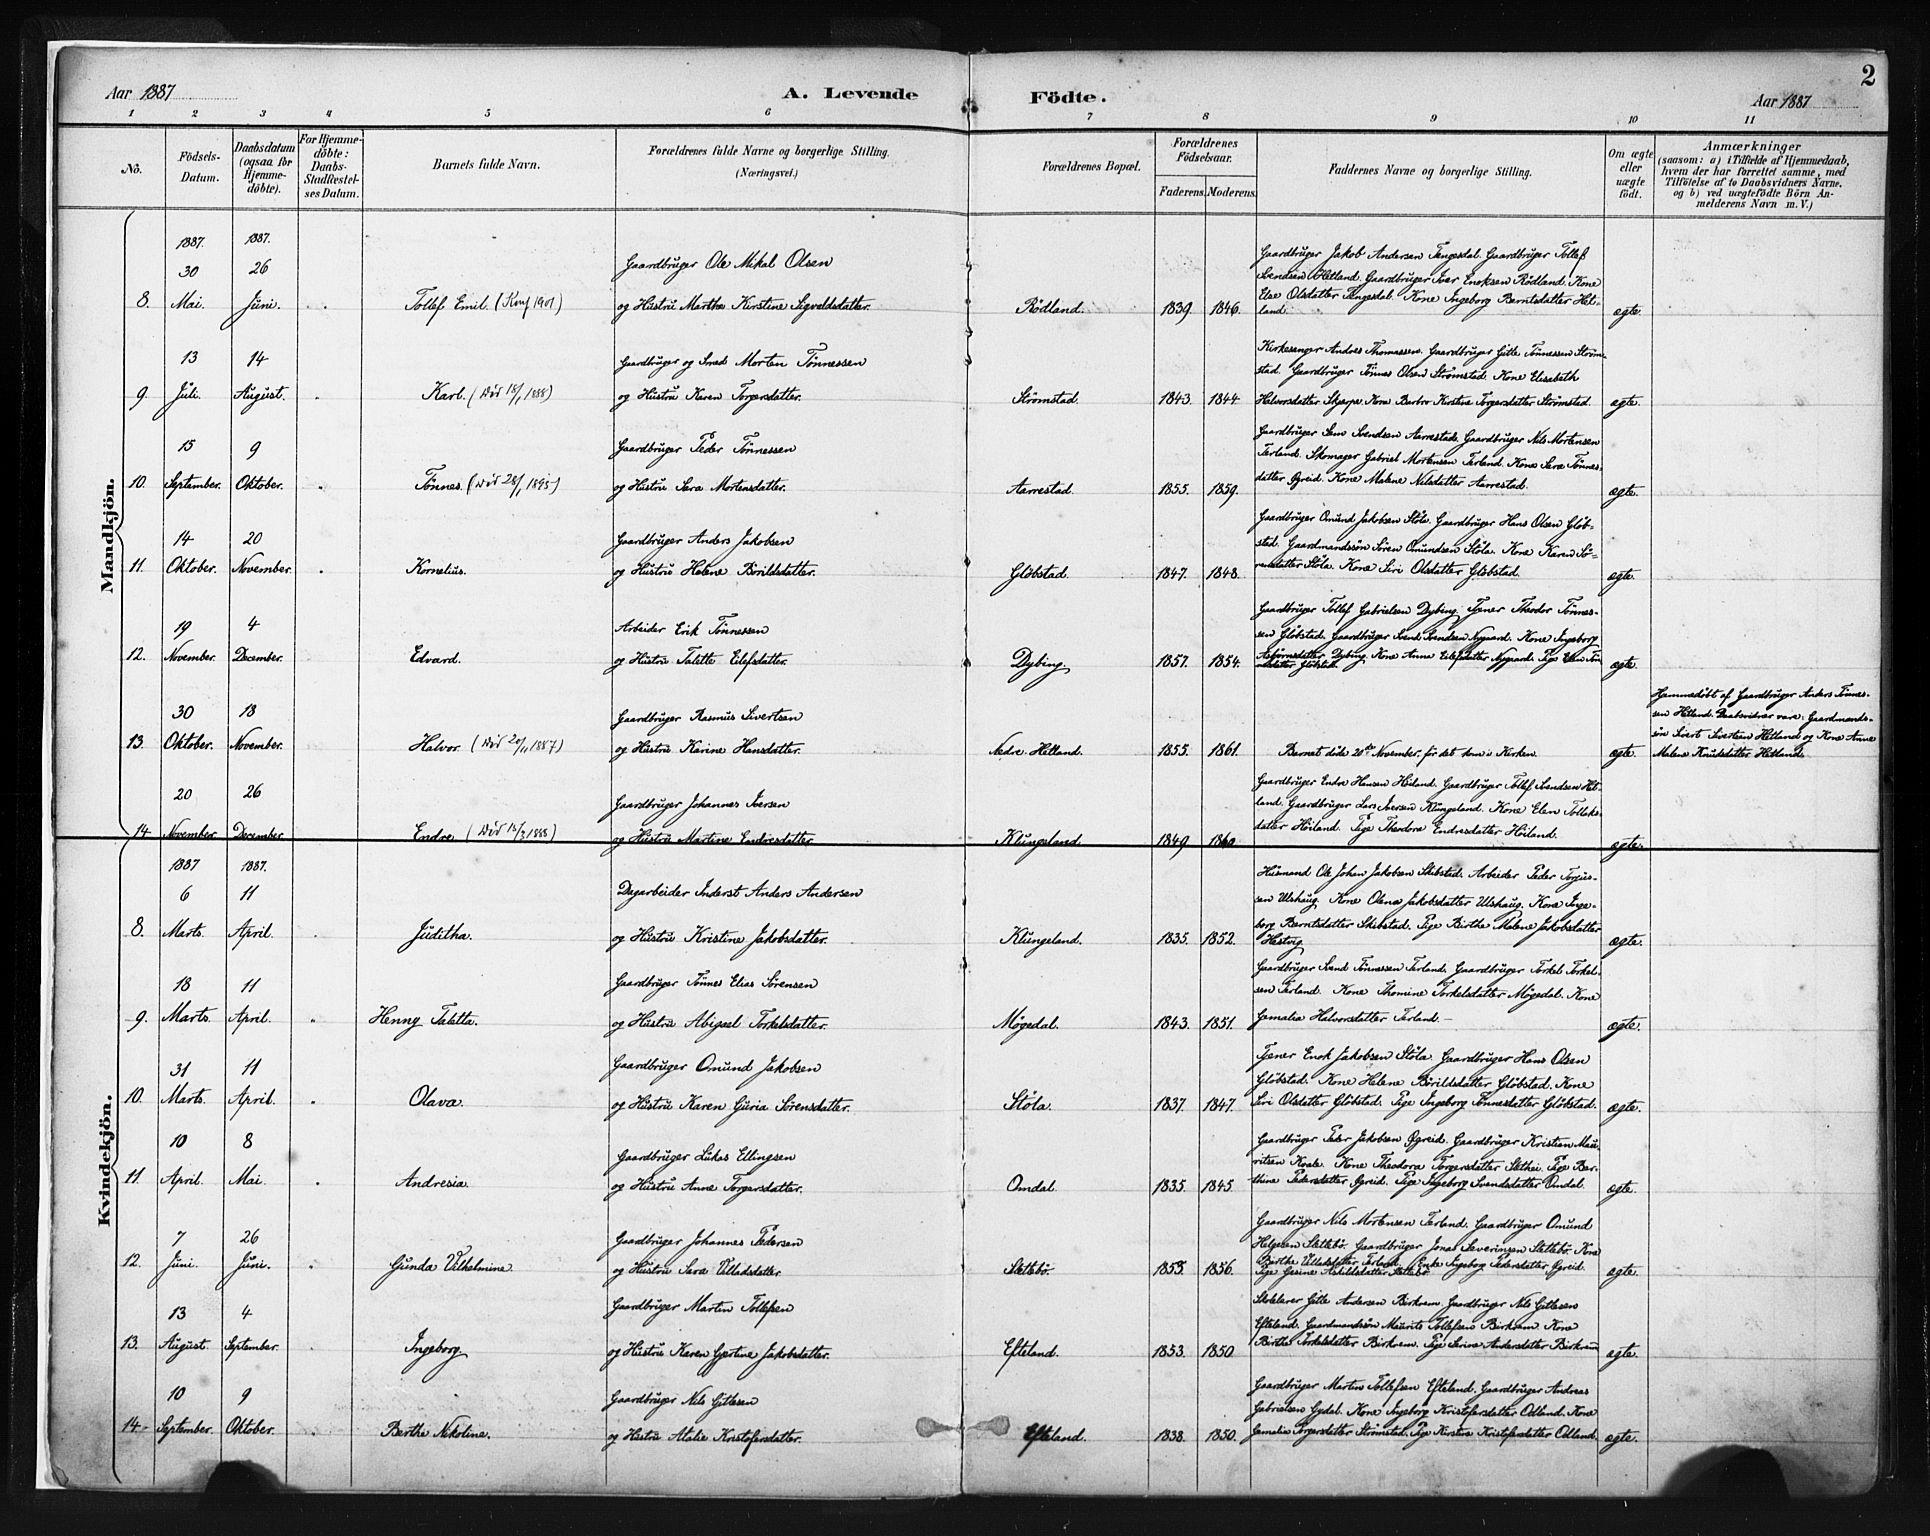 2
Aar 1887
A. Levende
Födte.
Aar 1887
1 2 3 4 5 6 7 8 9 10 11
No.
Födsels-
Datum.
Daabsdatum
(ogsaa for
Hjemme-
döbte).
For Hjemme-
döbte:
Daabs-
Stadfæstel-
ses Datum.
Barnets fulde Navn.
Forældrenes fulde Navne og borgerlige Stilling.
(Næringsvei.)
Forældrenes Bopæl.
Forældrenes
Födselsaar.
Faderens. Moderens.
Faddernes Navne og borgerlige Stilling.
Om ægte
eller
uægte
födt.
Anmærkninger
(saasom: a) i Tilfælde af Hjemmedaab,
hvem der har forrettet samme, med
Tilföielse af to Daabsvidners Navne.
og b) ved uægtefödte Börn An-
melderens Navn m. V.)
Mandkjön.
1887. 1887.
30 26
8. Mai. Juni.
Tollef Emil. (Konf 1901)
Gaardbruger Ole Mikal Olsen
og Hustru Martha Kirstine Sigvaldsdatter.
Rödland. 1839. 1846.
Gaardbruger Jakob Andersen Tengesdal. Gaardbruger Tollef
Svendsen Hetland. Gaardbruger Iver Enoksen Rödland. Kone
Else Olsdatter Tengesdal. Kone Ingeborg Berntsdatter Het-
land.
ægte.
13 14
9. Juli. August.
Karl. (Död 18/1 1888)
Gaardbruger og Smed Morten Tönnessen
og Hustru Karen Torgersdatter.
Strömstad. 1843. 1844.
Kirkesanger Andreas Thomassen. Gaardbruger Gitle Tönnessen Ström-
stad. Gaardbruger Tönnes Olsen Strömstad. Kone Elisabeth
Halvorsdatter Skjerpe. Kone Barbro Kirstine Torgersdatter Strömstad.
ægte.
15 9
10. September. Oktober.
Tönnes. (Död 28/1 1895)
Gaardbruger Peder Tönnessen
og Hustru Sara Mortensdatter.
Aarrestad. 1855. 1859.
Gaardbruger Sem Svendsen Aarrestad. Gaardbruger Nils Mortensen
Terland. Skomager Gabriel Mortensen Terland. Kone Sara Tönnes-
datter Øgreid. Kone Malene Nilsdatter Aarrestad.
ægte.
14 20
11. Oktober. November.
Kornelius.
Gaardbruger Anders Jakobsen
og Hustru Helene Börildsdatter.
Glöbstad. 1847. 1848.
Gaardbruger Omund Jakobsen Stöla. Gaardbruger Hans Olsen Glöb-
stad. Gaardmandssön Sören Omundsen Stöla. Kone Karen Sö-
rensdatter Stöla. Kone Siri Olsdatter Glöbstad.
ægte.
19 4
12. November. December.
Edvard.
Arbeider Erik Tönnessen
og Hustru Talette Eilefsdatter.
Dybing. 1857. 1854.
Gaardbruger Tollef Gabrielsen Dybing. Tjener Theodor Tönnes-
sen Glöbstad. Gaardbruger Svend Svendsen Nygaard. Kone Ingeborg
Asbjörnsdatter Dybing. Kone Anna Eilefsdatter Nygaard. Pige Elen Tön-
nesdatter Glöbstad.
ægte.
30 18
13. Oktober. November.
Halvor. (Död 20/11 1887)
Gaardbruger Rasmus Sivertsen
og Hustru Karine Hansdatter.
Nedre Hetland. 1855. 1861.
Barnet döde 20de November, för det kom i Kirken.
ægte.
Hjemmedöbt af Gaardbruger Anders Tönnes-
sen Hetland. Daabsvidner vare: Gaardmands-
sön Sivert Sivertsen Hetland og Kone Anne
Malene Knudsdatter Hetland.
20 26
14 November. December.
Endre. (Död 15/3 1888)
Gaardbruger Johannes Iversen
og Hustru Martine Endresdatter.
Klungeland. 1849. 1860.
Gaardbruger Endre Hansen Höiland. Gaardbruger Tollef Svendsen Het-
land. Gaardbruger Lars Iversen Klungeland. Kone Elen Tollaks-
datter Höiland. Pige Theodora Endresdatter Höiland.
ægte.
Kvindekjön.
1887 1887.
6 11
8. Marts. April.
Juditha.
Dagarbeider Inderst Anders Andersen
og Hustru Kristine Jakobsdatter.
Klungeland. 1835. 1852.
Husmand Ole Johan Jakobsen Skibstad. Arbeider Peder Torjus-
sen Ulshaug. Kone Olena Jakobsdatter Ulshaug. Kone Inge-
borg Berntsdatter Skibstad. Pige Birthe Malene Jakobsdatter
Hestvig.
ægte.
18 11
9. Marts. April.
Henny Taletta.
Gaardbruger Tönnes Elias Sörensen
og Hustru Abigael Torkelsdatter.
Mögedal. 1843. 1851.
Gaardbruger Svend Tönnessen Terland. Gaardbruger Torkel Torkel-
sen Terland. Kone Thomine Torkelsdatter Mögedal. Kone
Jamalia Halvorsdatter Terland. —
ægte.
31 11
10. Marts. April.
Olava.
Gaardbruger Omund Jakobsen
og Hustru Karen Guria Sörensdatter.
Stöla. 1837. 1847.
Tjener Enok Jakobsen Stöla. Gaardbruger Hans Olsen
Glöbstad. Kone Helene Börildsdatter Glöbstad. Kone
Siri Olsdatter Glöbstad. Pige Ingeborg Tönnesdatter Glöbstad.
ægte.
10 8
11. April. Mai.
Andresia.
Gaardbruger Lukas Ellingsen
og Hustru Anne Torgersdatter.
Omdal. 1835. 1845.
Gaardbruger Peder Jakobsen Øgreid. Gaardbruger Kristian Mau-
ritsen Kvale. Kone Theodora Torgersdatter Slethei. Pige Ber-
thine Pedersdatter Øgreid. Pige Ingeborg Svendsdatter Omdal.
ægte.
7 26
12. Juni. Juni.
Gunda Vilhelmine
Gaardbruger Johannes Pedersen
og Hustru Sara Villadsdatter
Slettebö. 1855. 1856.
Gaardbruger Nils Mortensen Terland. Gaardbruger Omund
Helgesen Slettebö. Gaardbruger Jonas Severinsen Slettebö. Kone
Birthe Villadsdatter Terland. Enke Ingeborg Pedersdatter Øgreid.
Pige Gesine Askildsdatter Slettebö.
ægte.
13 4
13. August. September.
Ingeborg.
Gaardbruger Martin Tollefsen
og Hustru Karen Gjertine Jakobsdatter.
Efteland. 1853. 1850.
Skolelærer Gitle Andersen Birkrem. Gaardbruger Nils Gitlesen
Efteland. Gaardmandssön Maurits Tollefsen Birkrem. Kone
Birthe Torkelsdatter Birkrem. Pige Serine Andersdatter Birkrem
ægte.
10 9
14. September. Oktober.
Berthe Nikoline.
Gaardbruger Nils Gitlesen
og Hustru Atalie Kristofersdatter.
Efteland. 1838. 1850.
Gaardbruger Martin Tollefsen Efteland. Gaardbruger Andreas
Gabrielsen Gydal. Kone Ingeborg Kristofersdatter Odland. Kone
Jamalia Torgersdatter Strömstad. Pige Kirstine Kristofersdatter Odland.
ægte.